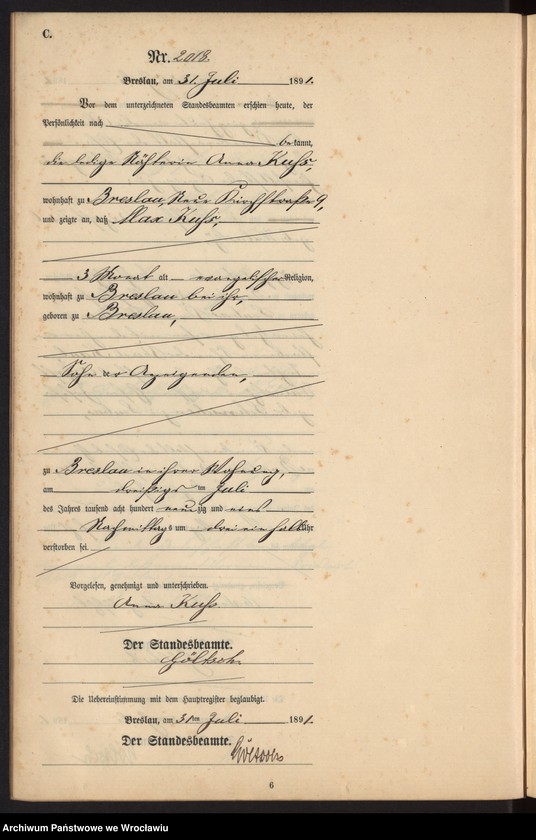 C.
Nr. 2018.
Breslau, am 31. Juli 1891.
Vor dem unterzeichneten Standesbeamten erschien heute, der
Persönlichkeit nach
bekannt,
die ledige Nähterin Anna Kuhs,
wohnhaft zu Breslau, Neue Kirchstraße 9,
und zeigte an, daß Max Kuhs,
3 Monat alt evangelischer Religion,
wohnhaft zu Breslau bei ihr,
geboren zu Breslau,
Sohn der Anzeigenden,
zu Breslau in ihrer Wohnung,
am dreißigs ten Juli
des Jahres tausend acht hundert neunzig und eins
Nachmittags um drei ein halb Uhr
verstorben sei.
Vorgelesen, genehmigt und unterschrieben.
Anna Kuhs
Der Standesbeamte.
Die Uebereinstimmung mit dem Hauptregister beglaubigt.
Breslau, am 31ten Juli 1891.
Der Standesbeamte.
6
Archiwum Państwowe we Wrocławiu